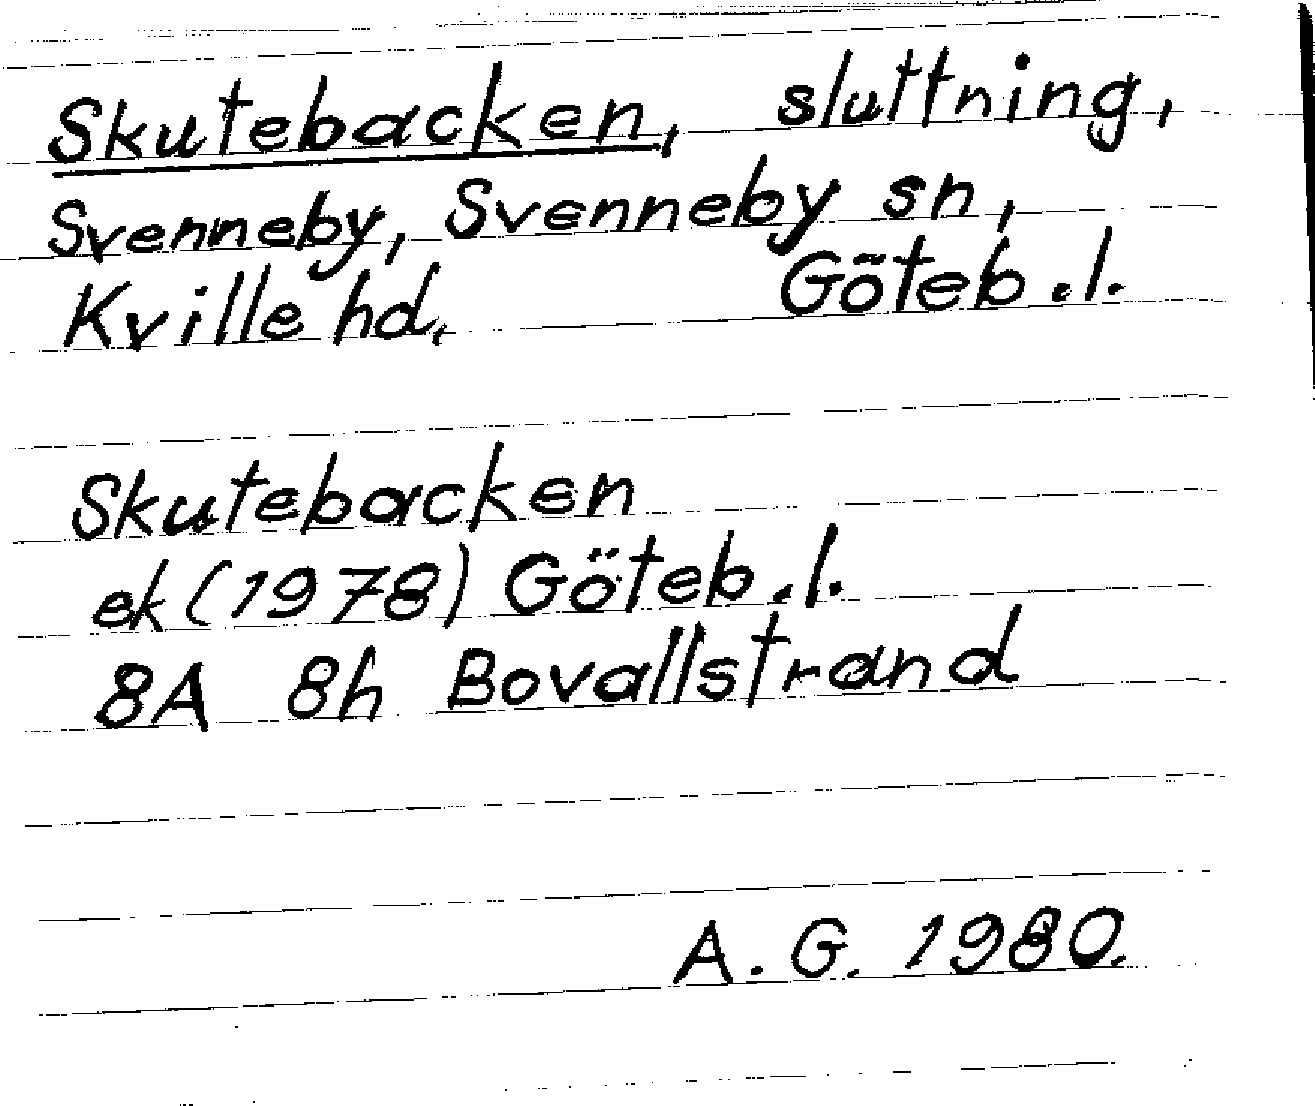 Skutebacken, sluttning,
Svenneby, Svenneby sn,
Kville hd. Göteb.l.
Skutebacken
ek (1978) Göteb.l.
8A 8h Bovallstrand
A.G. 1980.